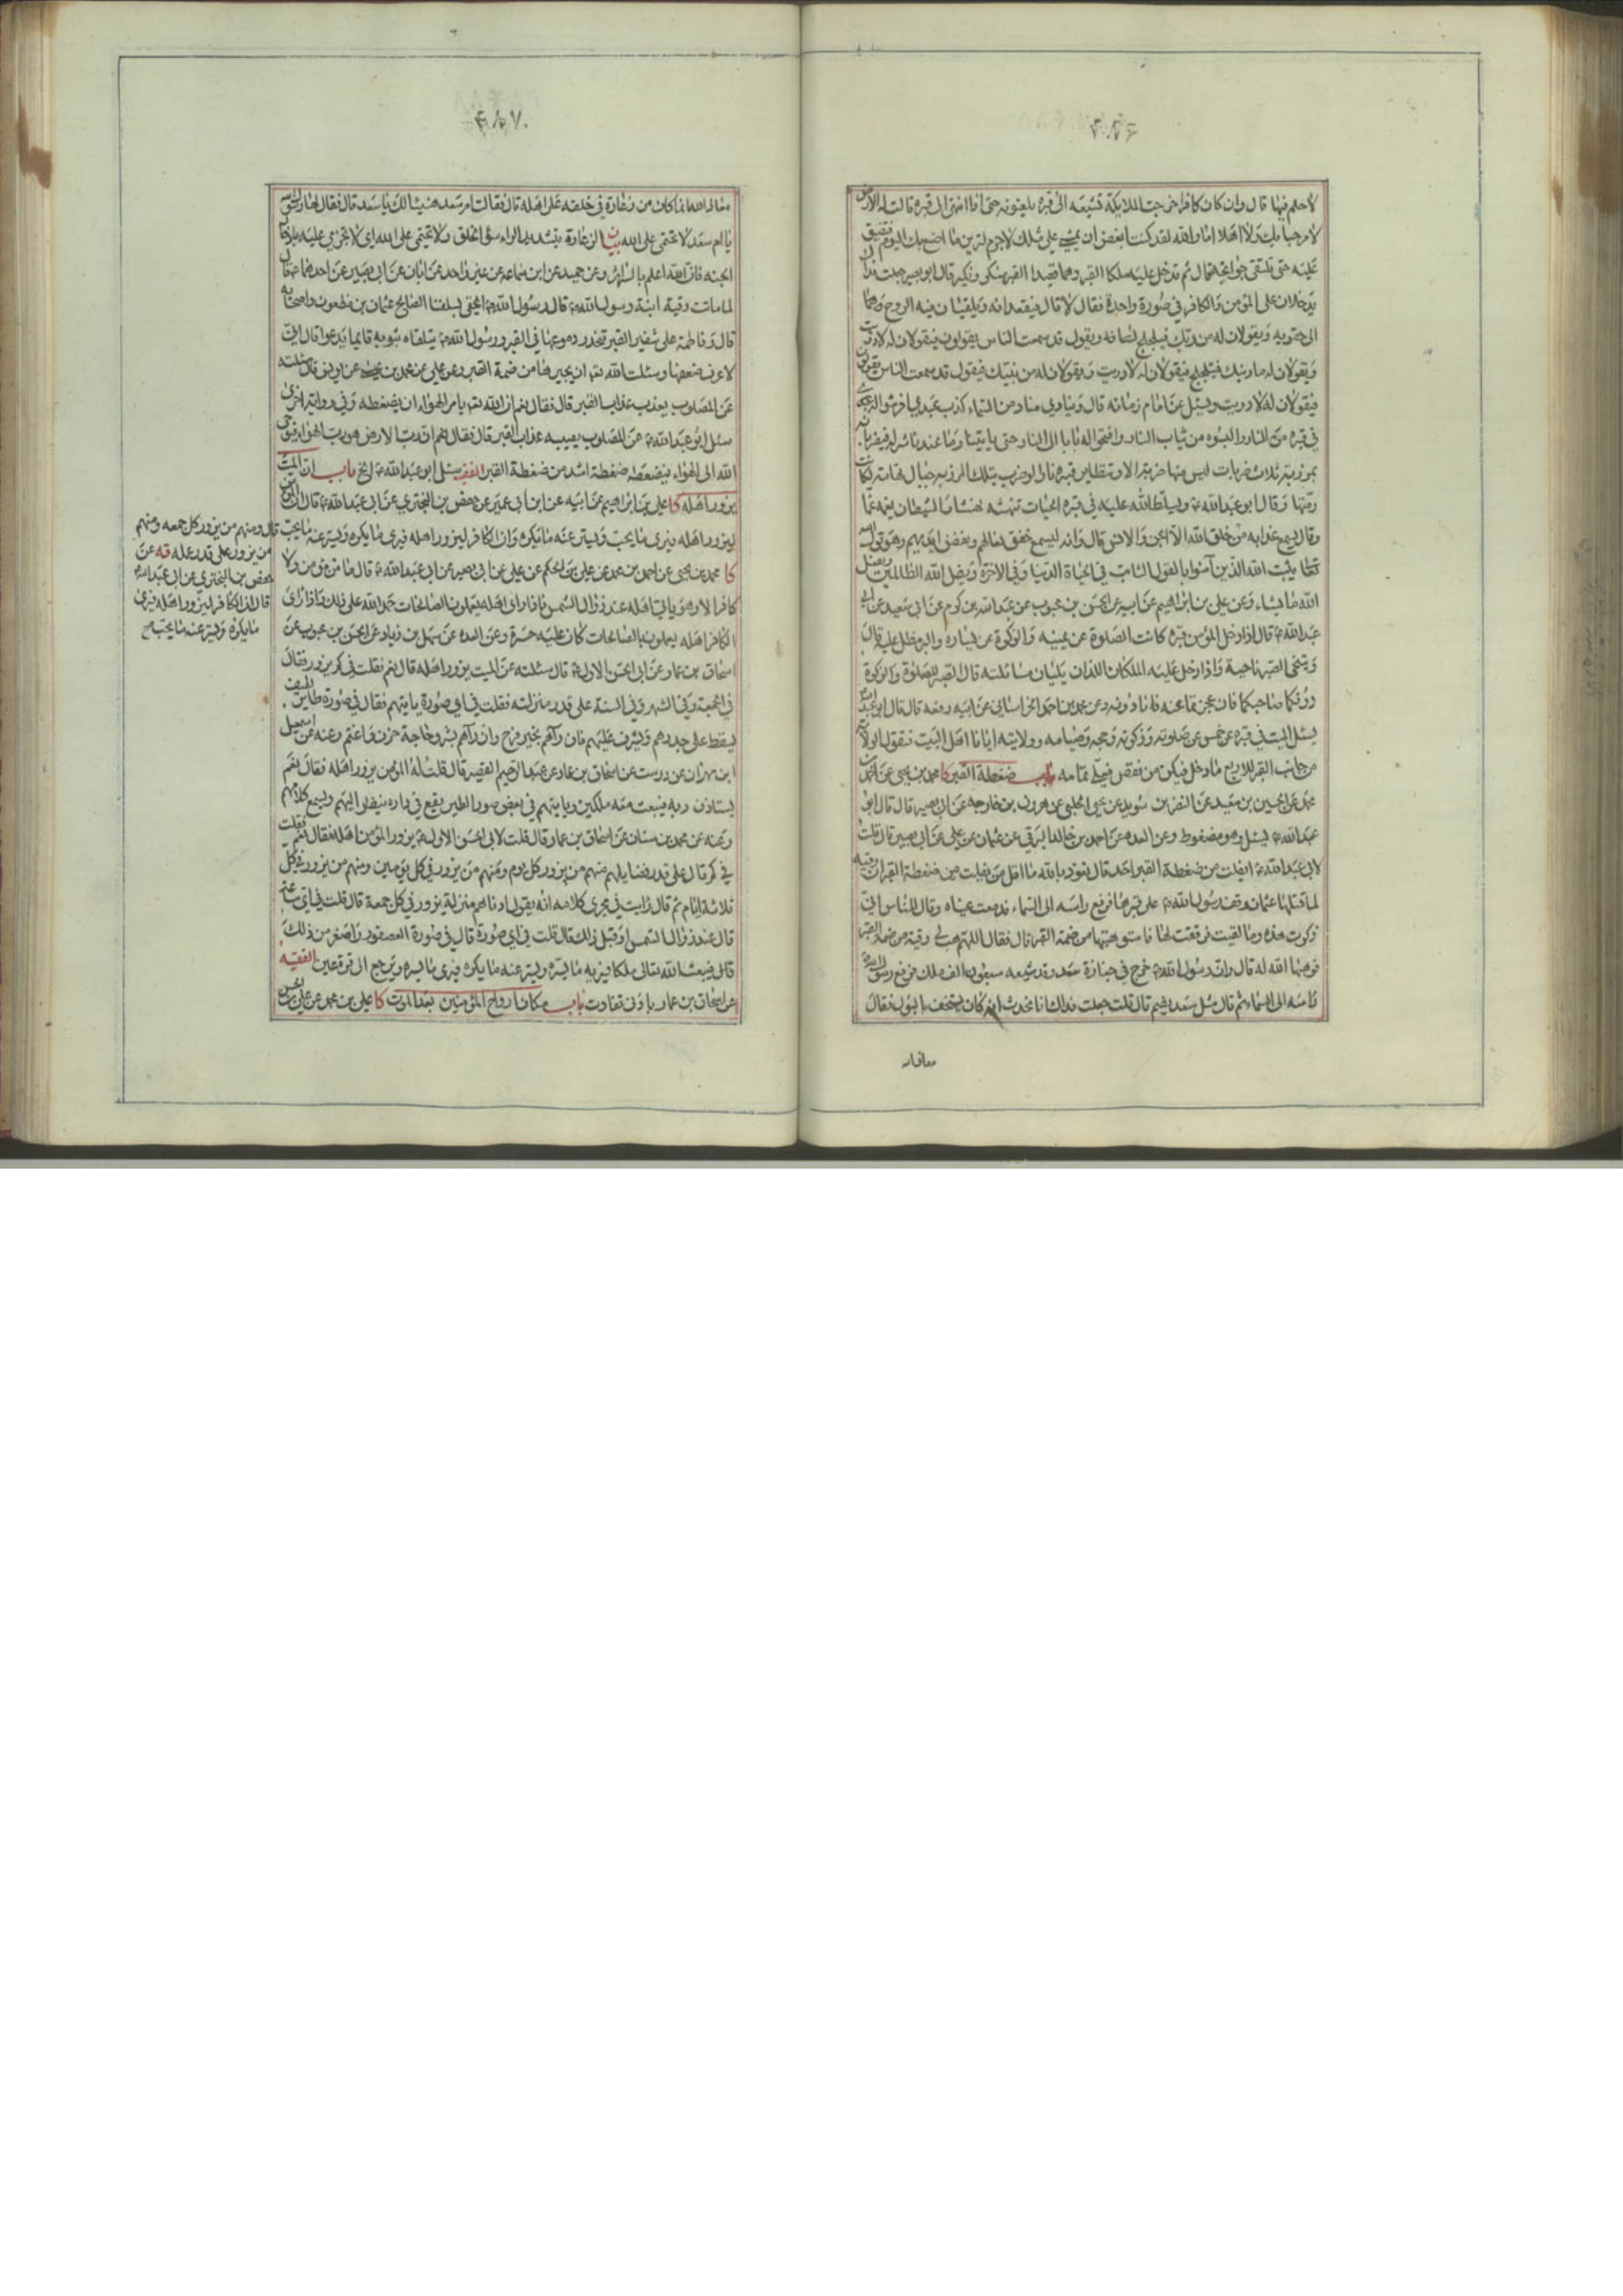 لاحلم فيها قال وان كان كافرا خرجت الملايكة تشيعه الى قبره يلعنونه حتى اذا انتهى الى قبره قالت له الارض
لا مرحبا بك ولا اهلا اما والله لقد كنت ابغض ان يمشي علي مثلك لا جرم لترين ما اصنع بك اليوم فتضيق
عليه حتى تلتقي جوانحه قال ثم تدخل عليه ملكا القبر وهما قعيدا القبر منكر ونكير قال ابو بصير جعلت فداك
يدخلان على المؤمن والكافر في صورة واحدة فقال لا قال فيقعدانه ويلقيان فيه الروح
الى حقويه ويقولان له من ربك فيتلجلج لسانه ويقول قد سمعت الناس يقولون فيقولان له لا دريت
ويقولان له ما دينك فيتلجلج فيقولان له لا دريت ويقولان له من نبيك فيقول قد سمعت الناس يقولون
فيقولان له لا دريت ويسئل عن امام زمانه قال وينادي مناد من السماء كذب عبدي افرشوا له
في قبره من النار والبسوه من ثياب النار وافتحوا له بابا الى النار حتى ياتينا وما عندنا شر له فيضربانه
بمرزبة ثلاث ضربات ليس منها ضربة الا وتطاير قبره نارا لو ضرب بتلك المرزبة جبال تهامة لكانت
رميما وقال ابو عبد الله ع ويسلط الله عليه في قبره الحيات تنهشه نهشا والشيطان يغمه غما
وقال يسمع عذابه من خلق الله الا الجن والانس قال وانه ليسمع خفق نعالهم ونفض ايديهم وهو قول الله
تعالى يثبت الله الذين آمنوا بالقول الثابت في الحياة الدنيا وفي الاخرة ويضل الله الظالمين ويفعل
الله ما يشاء وعن علي بن ابراهيم عن ابيه عن الحسن بن محبوب عن عبد الله بن كولوم عن ابي سعيد عن ابي
عبد الله ع قال اذا دخل المؤمن قبره كانت الصلوة عن يمينه والزكوة عن يساره والبر مطل عليه قال
ويتنحى الصبر ناحية واذا دخل عليه الملكان اللذان يليان مسائلته قال الصبر للصلوة والزكوة
دونكما صاحبكما فان عجزتما عنه فانا دونه وعن محمد بن احمد الخراساني عن ابيه رفعه قال قال ابو عبد الله
يسئل الميت في قبره عن خمس عن صلوته وزكوته وحجه وصيامه وولايته ايانا اهل البيت فتقول الولاية
من جانب القبر للاربع ما دخل فيكن من نقص فعلي تمامه باب ضغطة القبر كا محمد بن يحيى عن احمد بن
محمد عن الحسين بن سعيد عن النضر بن سويد عن يحيى الحلبي عن هرون بن خارجه عن ابي بصير قال قال ابو
عبد الله ع يسئل وهو مضغوط وعن العدة عن احمد بن خالد البرقي عن عثمان عن علي عن ابي بصير قال قلت
لابي عبد الله ع ايفلت من ضغطة القبر احد قال نعوذ بالله ما اقل من يفلت من ضغطة القبر ان رقية
لما قتلها عثمان وقف رسول الله ص على قبرها فرفع راسه الى السماء فدمعت عيناه وقال للناس اني
ذكرت هذه وما لقيت فرققت لها فاستوهبتها من ضمة القبر قال فقال اللهم هب لي رقية من ضمة القبر
فوهبها الله له قال وان رسول الله ص خرج في جنازة سعد وقد شيعه سبعون الف ملك فرفع رسول الله
راسه الى السماء ثم قال مثل سعد يضم قال قلت جعلت فداك انا نحدث انه كان يستخف بالبول فقال
معاذ الله
معاذ الله انما كان من زعارة في خلقه على اهله قال فقالت ام سعد هنيئا لك يا سعد قال فقال لها رسول الله
يا ام سعد لا تحتمي على الله بيان الزعارة بتشديد الراء سوء الخلق ولا تحتمي على الله اي لا تجزمي عليه بادخال
الجنة فان الله اعلم بالسرائر وعن حميد عن ابن سماعه عن غير واحد عن ابان عن ابي بصير عن احدهما ع قال
لما ماتت رقية ابنة رسول الله ص قال رسول الله ص الحقي بسلفنا الصالح عثمان بن مظعون واصحابه
قال وفاطمة على شفير القبر تنحدر دموعها في القبر ورسول الله ص يتلقاه بثوبه قائما يدعو قال اني
لاعرف ضعفها وسئلت الله ان يجيرها من ضمة القبر وعن علي عن محمد بن عن يونس قال سئلته
عن المصلوب يعذب عذاب القبر قال فقال نعم ان الله يامر الهواء ان يضغطه وفي رواية اخرى
سئل ابو عبد الله ع عن المصلوب يصيبه عذاب القبر قال فقال ان رب الارض هو رب الهواء فيوحي
الله الى الهواء فيضغطه ضغطة اشد من ضغطة القبر الفقيه سئل ابو عبد الله ع الخ باب ان الميت
يزور اهله كا علي بن ابراهيم عن ابيه عن ابن ابي عمير عن حفص بن البختري عن ابي عبد الله ع قال ان المؤمن
ليزور اهله فيرى ما يحب ويستر عنه ما يكره وان الكافر ليزور اهله فيرى ما يكره ويستر عنه ما يحب
كا محمد بن يحيى عن احمد بن محمد عن علي بن الحكم عن علي عن ابي بصير عن ابي عبد الله ع قال ما من مؤمن ولا
كافر الا وهو ياتي اهله عند زوال الشمس فاذا راى اهله يعملون الصالحات حمد الله على ذلك واذا راى
الكافر اهله يعملون بالصالحات كان عليه حسرة وعن العدة عن سهل بن زياد عن الحسن بن محبوب عن
اسحاق بن عمار عن ابي الحسن الاول ع قال سئلته عن الميت يزور اهله قال نعم فقلت في كم يزور فقال
في الجمعة وفي الشهر وفي السنة على قدر منزلته فقلت في اي صورة ياتيهم فقال في صورة طاير لطيف
يسقط على جدرهم ويشرف عليهم فان رآهم بخير فرح وان رآهم بشر وحاجة حزن واغتم وعنه عن اسمعيل
ابن مهران عن درست عن اسحاق بن عمار عن عبد الرحيم القصير قال قلت له المؤمن يزور اهله فقال نعم
يستاذن ربه فيبعث معه ملكين وياتيهم في بعض صور الطير يقع في داره ينظر اليهم ويسمع كلامهم
وعنه عن محمد بن سنان عن اسحاق بن عمار قال قلت لابي الحسن الاول ع يزور المؤمن اهله فقال نعم فقلت
في كم قال على قدر فضايلهم منهم من يزور كل يوم ومنهم من يزور في كل يومين ومنهم من يزور في كل
ثلاثة ايام ثم قال رايت في مجرى كلامه انه يقول ادناهم منزلة يزور في كل جمعة قال قلت في اي ساعة
قال عند زوال الشمس او قبل ذلك قال قلت في اي صورة قال في صورة العصفور واصغر من ذلك
قال فيبعث الله تعالى ملكا فيريه ما يسره ويستر عنه ما يكره فيرى ما يسره ويرجع الى قرة عين الفقيه
عن اسحاق بن عمار بادنى تفاوت باب مكان ارواح المؤمنين بعد الموت كا علي بن محمد عن علي بن الحسن
قال ومنهم من يزور كل جمعه ومنهم
من يزور على قدر عمله قه عن
حفص بن البختري عن ابي عبد الله
قال ان الكافر ليزور اهله فيرى
ما يكره ويستر عنه ما يحب صح